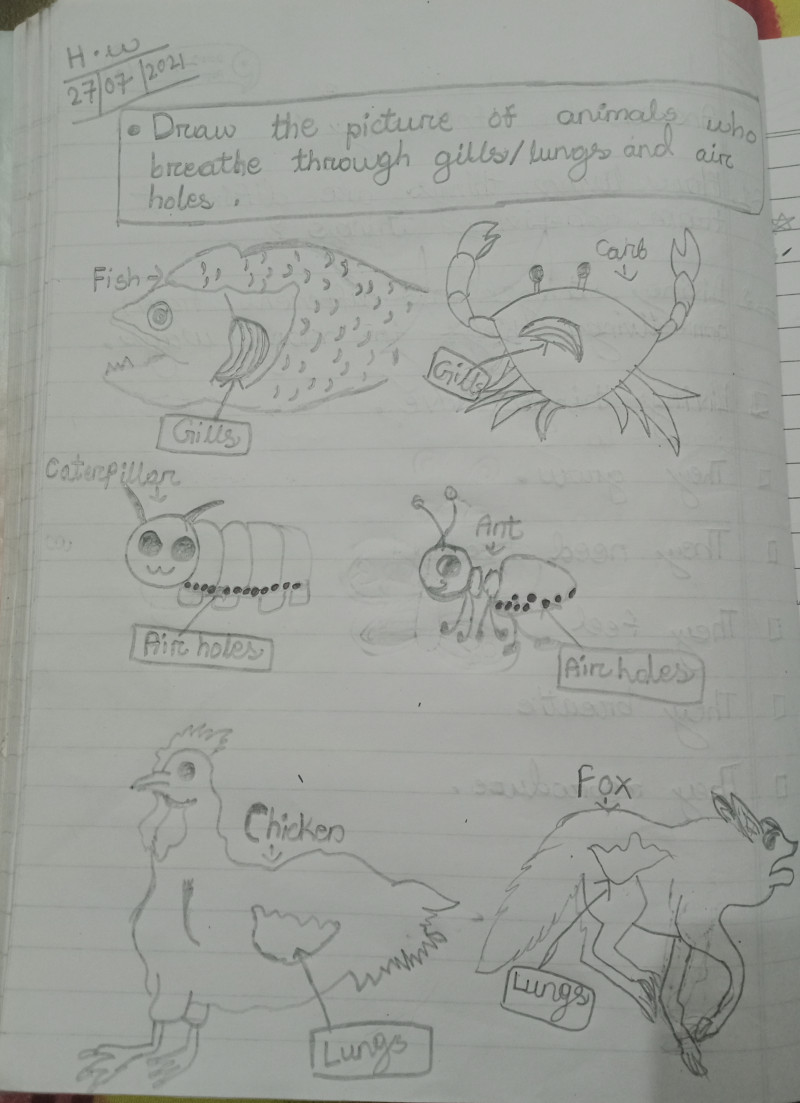 H.W
27/07/2021
• Draw the picture of animals who
breathe through gills/lungs and air
holes.
Fish
Carb
Gills
Gills
Caterpillar
Ant
Air holes
Air holes
Chicken
Fox
Lungs
Lungs